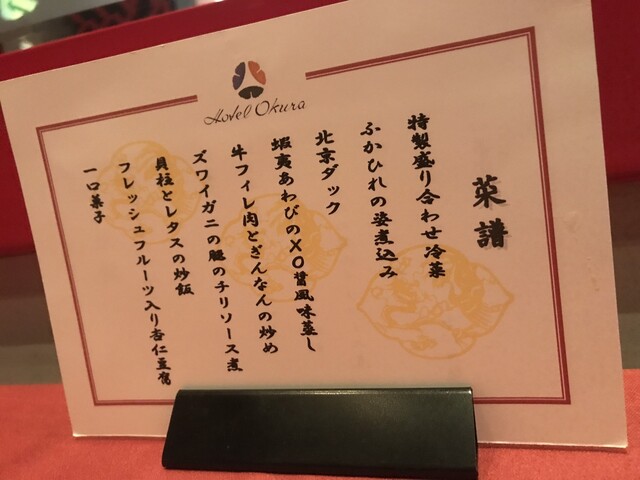 Hotel Okura
菜譜
特製盛り合わせ冷菜
ふかひれの姿煮込み
北京ダック
蝦夷あわびのXO醤風味蒸し
牛フィレ肉とぎんなんの炒め
ズワイガニの腿のチリソース煮
貝柱とレタスの炒飯
フレッシュフルーツ入り杏仁豆腐
一口菓子